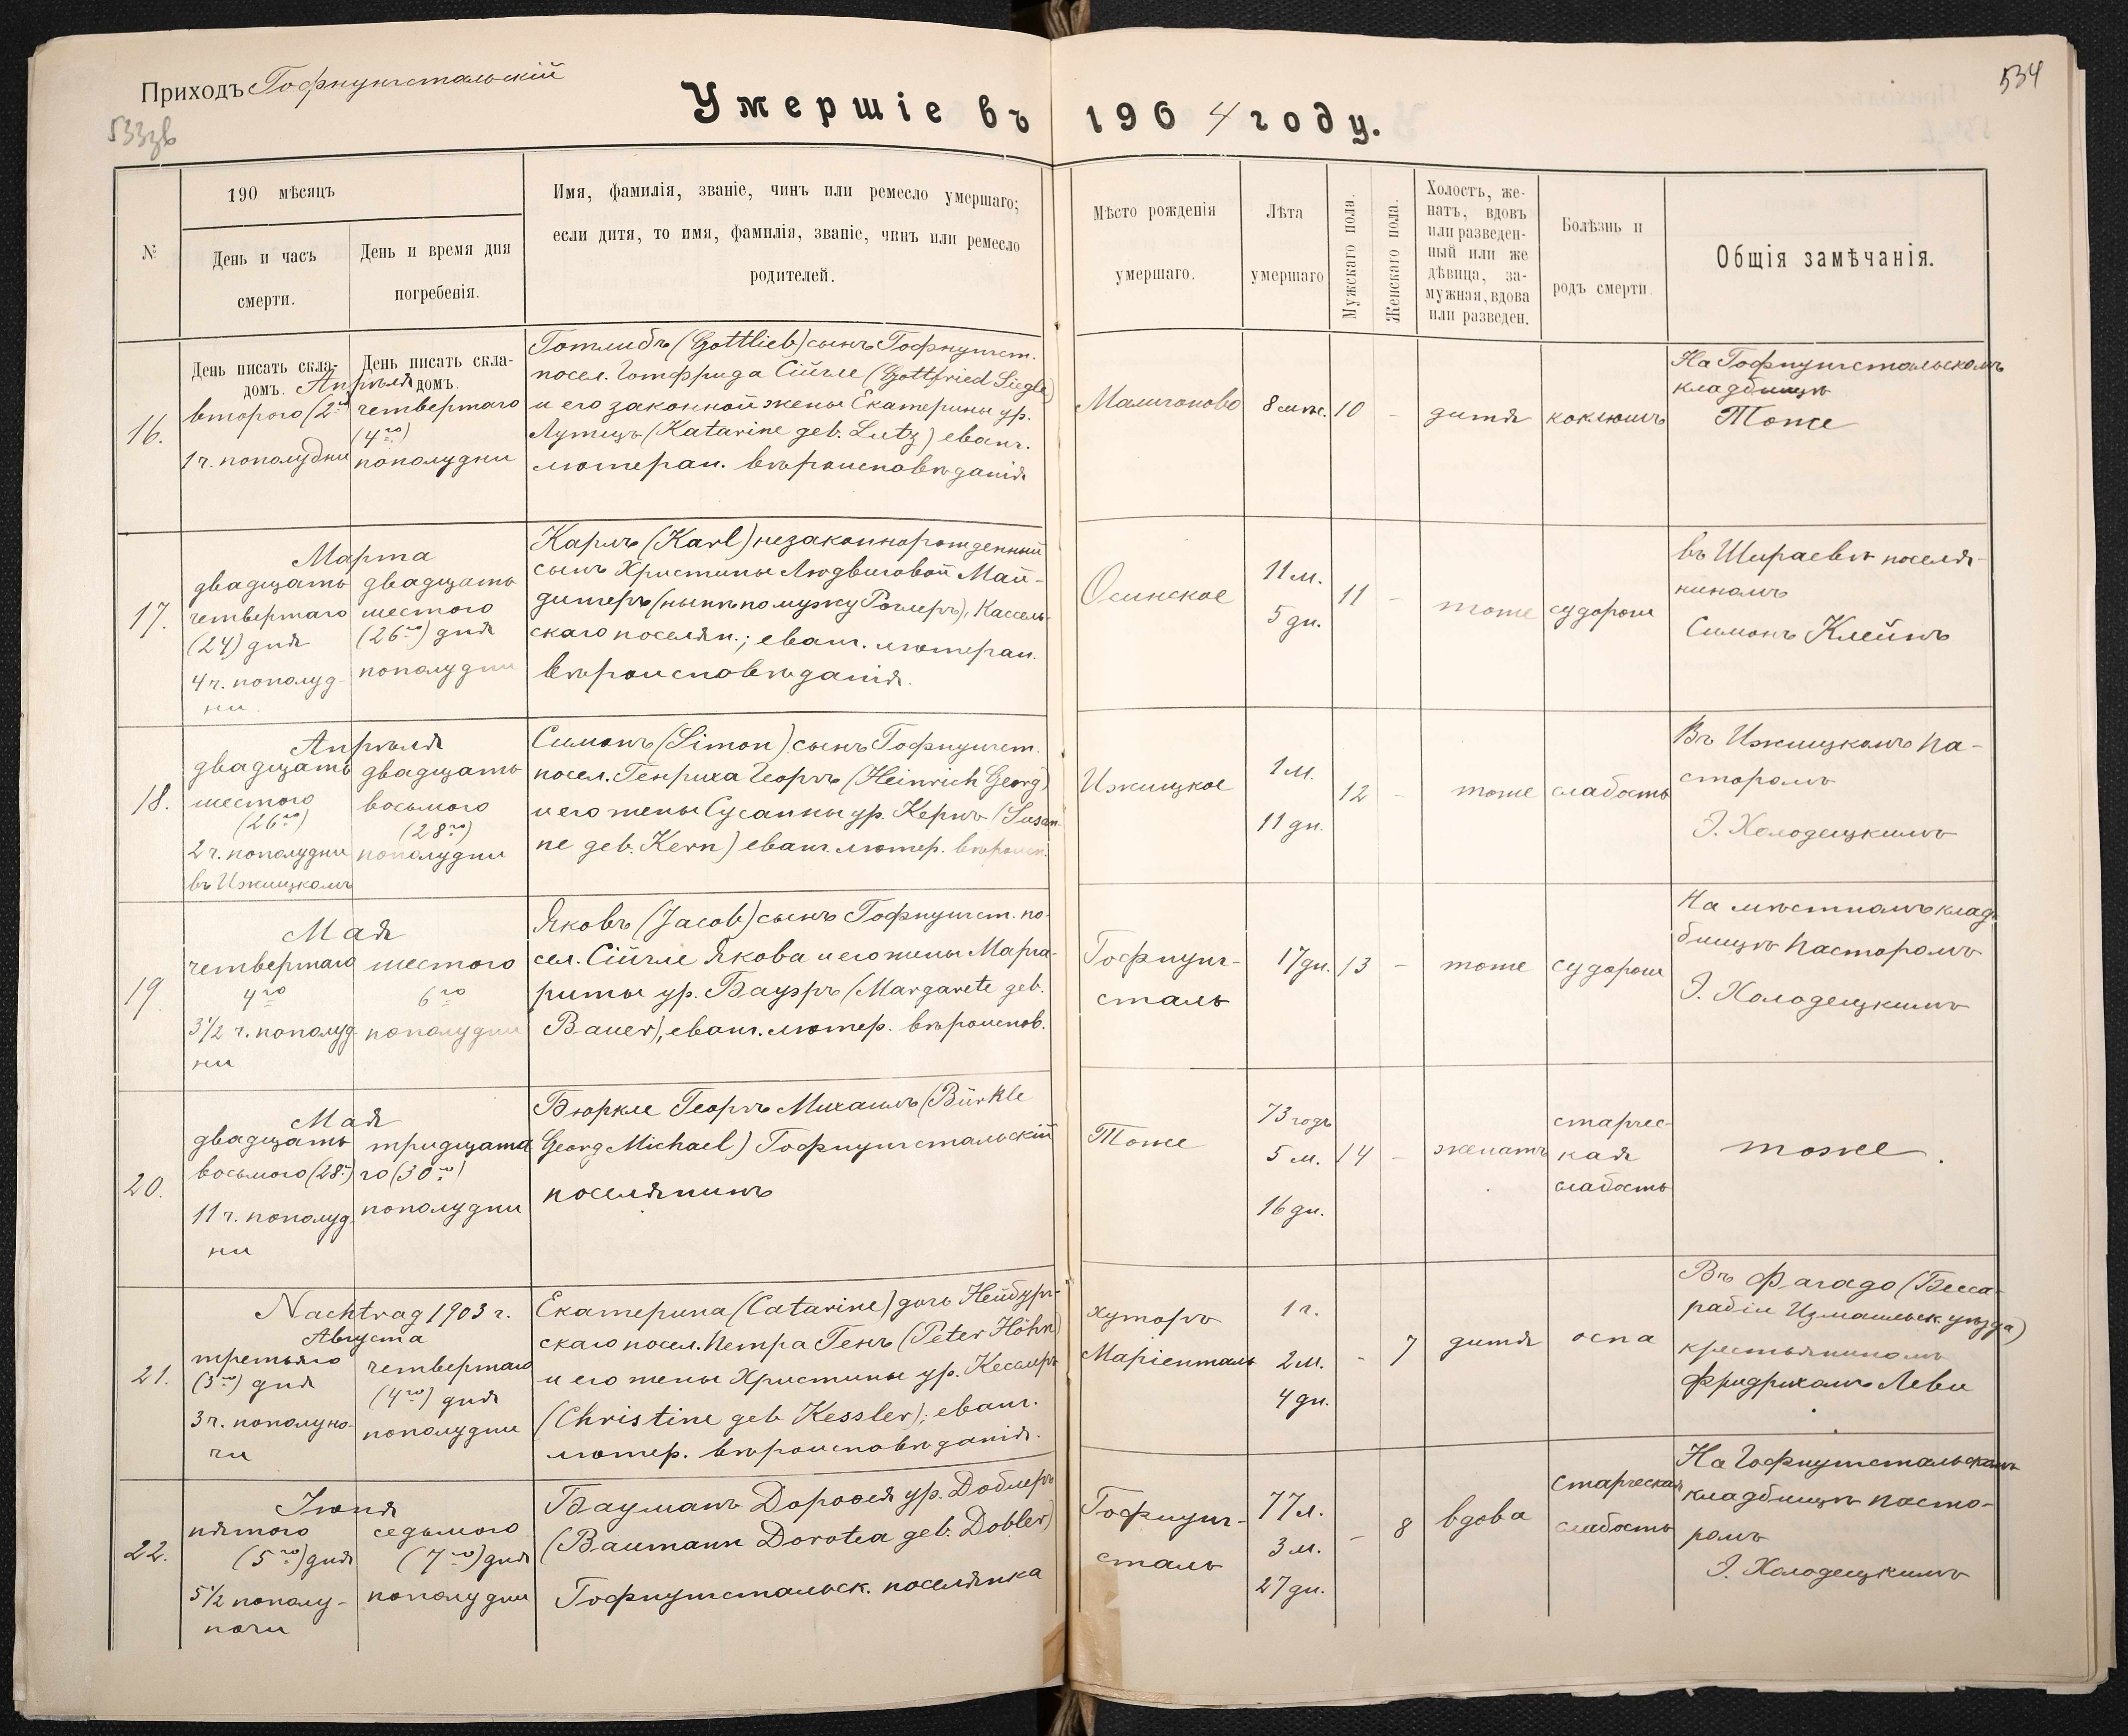 Приходъ Гофнунгстальскій
533зв
534
Умершіе въ 1904 году.
№
190 мѣсяцъ
День и часъ
смерти.
День и время дня
погребенія.
Имя, фамилія, званіе, чинъ или ремесло умершаго;
если дитя, то имя, фамилія, званіе, чинъ или ремесло
родителей.
Мѣсто рожденія
умершаго.
Лѣта
умершаго
Мужскаго пола.
Женскаго пола.
Холостъ, же-
натъ, вдовъ
или разведен-
ный или же
дѣвица, за-
мужная, вдова
или разведен.
Болѣзнь и
родъ смерти.
Общія замѣчанія.
16.
День писать скла-
домъ. Апрѣля
второго (2го)
1 ч. пополудни
День писать скла-
домъ.
четвертаго
(4го)
пополудни
Готлибъ (Gottlieb) сынъ Гофнунгст.
посел. Готфрида Сійгле (Gottfried Siegle)
и его законной жены Екатерины ур.
Лутцъ (Katarine geb. Lutz) еванг.
лютеран. вѣроисповѣданія
Малигоново
8 мѣс.
10
-
дитя
коклюшъ
На Гофнунгстальскомъ
кладбищѣ
Тоже
17.
Марта
двадцать
четвертаго
(24) дня
4 ч. пополуд-
ни.
двадцать
шестого
(26го) дня
пополудни
Карлъ (Karl) незаконнорожденный
сынъ Христины Людвиговой Май-
дитеръ (нынѣ по мужу Роглеръ), Кассель-
скаго поселян.; еванг. лютеран.
вѣроисповѣданія.
Осинское
11 м.
5 дн.
11
-
тоже
судороги
въ Шираевѣ поселя-
ниномъ
Симонъ Клейнъ
18.
Апрѣля
двадцать
шестого
(26го)
2 ч. пополудни
въ Ижицкомъ
двадцать
восьмого
(28го)
пополудни
Симонъ (Simon) сынъ Гофнунгст.
посел. Генриха Георгъ (Heinrich Georg)
и его жены Сусанны ур. Кернъ (Susan-
ne geb. Kern) еванг. лютер. вѣроисп.
Ижицкое
1 м.
11 дн.
12
-
тоже
слабость
Въ Ижицкомъ па-
сторомъ
І. Холодецкимъ
19.
Мая
четвертаго
4го
3 1/2 ч. пополуд-
ни
шестого
6го
пополудни
Яковъ (Jacob) сынъ Гофнунгст. по-
сел. Сійгле Якова и его жены Марга-
риты ур. Бауэръ (Margarete geb.
Bauer), еванг. лютер. вѣроиспов.
Гофнунг-
сталь
17 дн.
13
-
тоже
судороги
На мѣстномъ клад-
бищѣ пасторомъ
І. Холодецкимъ
20.
Мая
двадцать
восьмого (28го)
11 ч. пополуд-
ни
тридцата
го (30го)
пополудни
Бюркле Георгъ Михаилъ (Bürkle
Georg Michael) Гофнунгстальскій
поселянинъ
Тоже
73 года
5 м.
16 дн.
14
-
женатъ
старчес-
кая
слабость
тоже.
21.
Nachtrag 1903 г.
Августа
третьяго
(3го) дня
3 ч. пополуно-
чи
четвертаго
(4го) дня
пополудни
Екатерина (Catarine) дочь Нейбург-
скаго посел. Петра Генъ (Peter Höhn)
и его жены Христины ур. Кеслеръ
(Christine geb Kessler); еванг.
лютер. вѣроисповѣданія.
хуторъ
Маріенталь
1 г.
2 м.
4 дн.
-
7
дитя
оспа
Въ Фагадо (Бесса-
рабіи Измаильск. уѣзда)
крестьяниномъ
Фридрихомъ Леви
22.
Іюня
пятого
(5го) дня
5 1/2 пополу-
ночи
седьмого
(7го) дня
пополудни
Бауманъ Доротея ур. Доблеръ
(Baumann Dorotea geb. Dobler)
Гофнунгстальск. поселянка
Гофнунг-
сталь
77 л.
3 м.
27 дн.
-
8
вдова
старческая
слабость
На Гофнунгстальскомъ
кладбищѣ пасто-
ромъ
І. Холодецкимъ